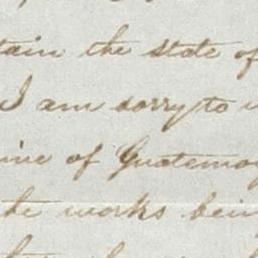 tain the state of
I am sorry to
of Guatemo
the works bein